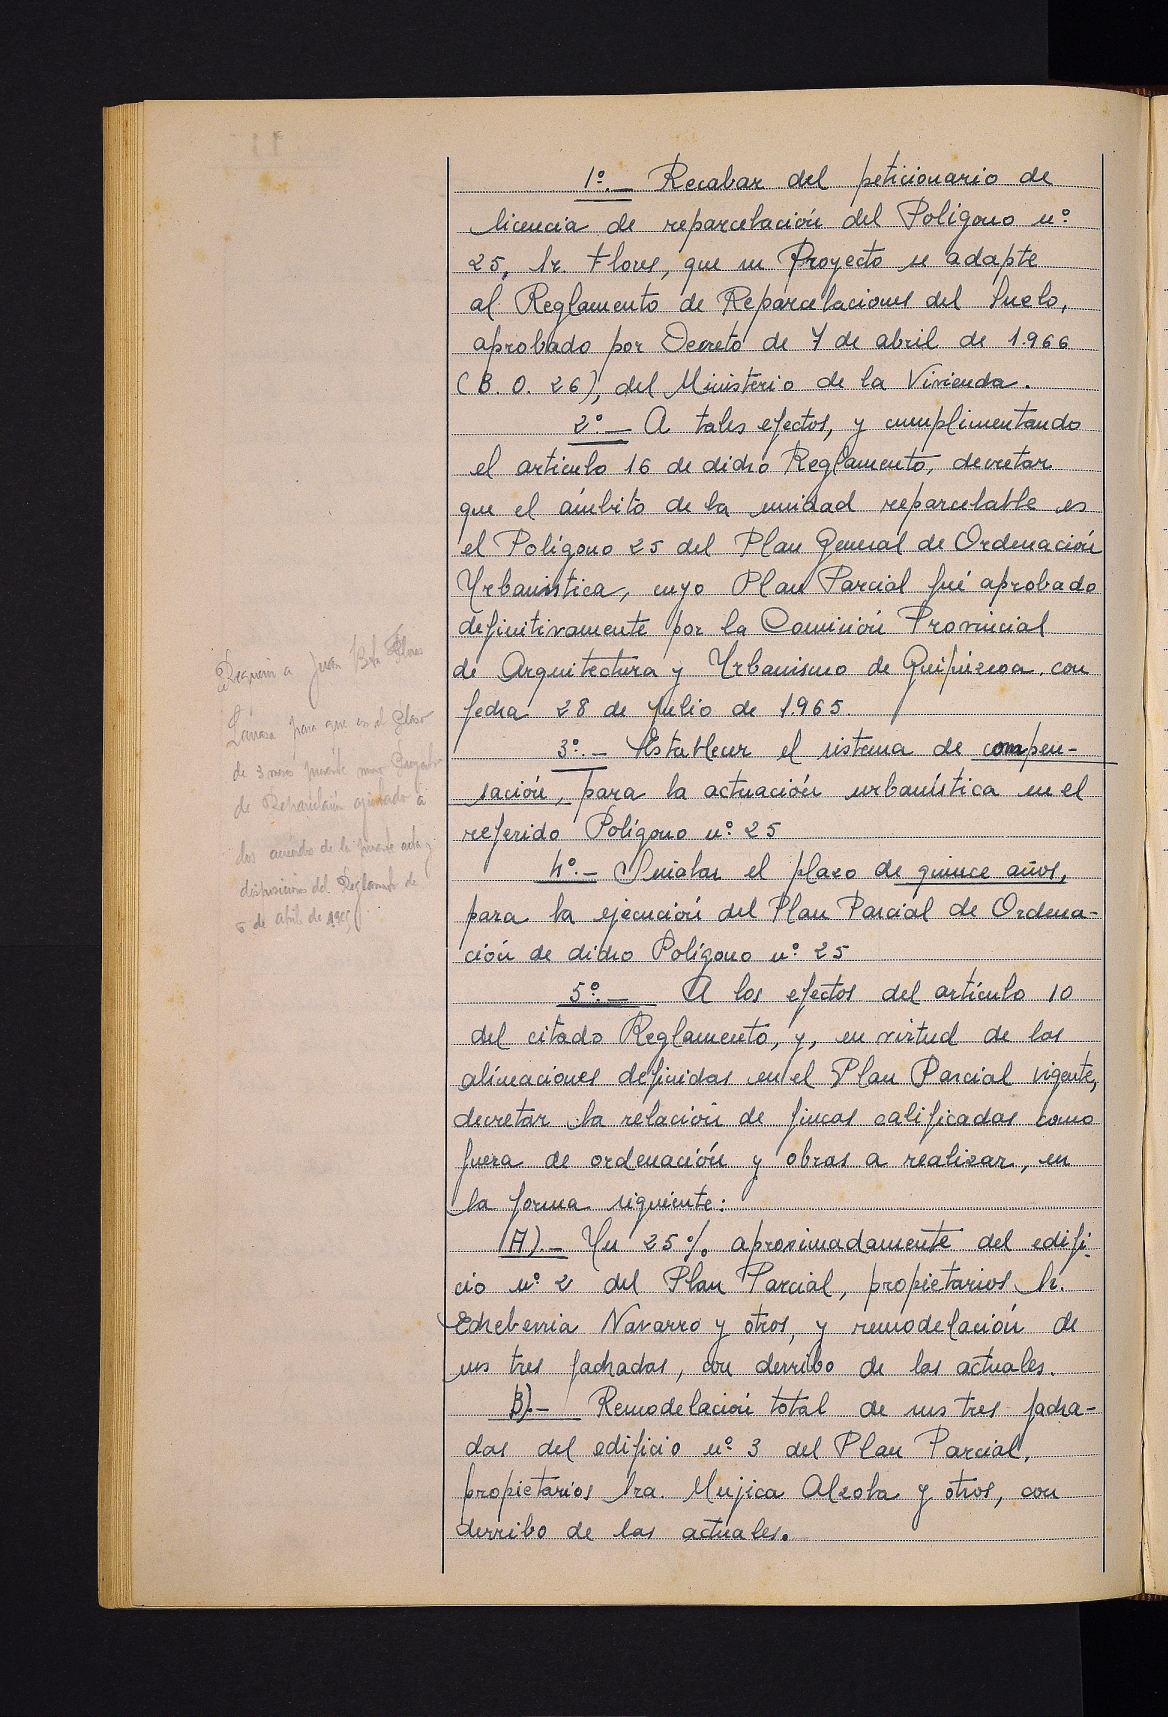 1º.- Recabar del peticionario de
licencia de reparcelación del Polígono nº
25, Sr. Flores, que su Proyecto se adapte
al Reglamento de Reparcelaciones del Suelo,
aprobado por Decreto de 7 de abril de 1.966
(B. O. 26), del Ministerio de la Vivienda.
2º.- A tales efectos, y cumplimentando
el articulo 16 de dicho Reglamento, decretar
que el ámbito de la unidad reparcelable es
el Polígono 25 del Plan General de Ordenación
Urbanística, cuyo Plan Parcial fué aprobado
definitivamente por la Comisión Provincial
de Arquitectura y Urbanismo de Guipúzcoa con
fecha 28 de julio de 1.965.
3º.- Establecer el sistema de compen-
sación, para la actuación urbanística en el
referido Polígono nº 25
4º.- Señalar el plazo de quince años,
para la ejecución del Plan Parcial de Ordena-
ción de dicho Polígono nº 25
5º.- A los efectos del artículo 10
del citado Reglamento, y, en virtud de las
alineaciones definidas en el Plan Parcial vigente,
decretar la relación de fincas calificadas como
fuera de ordenación y obras a realizar, en
la forma siguiente:
A).- Un 25% aproximadamente del edifi-
cio nº 2 del Plan Parcial, propietarios Sr.
Echeberria Navarro y otros, y remodelación de
sus tres fachadas, con derribo de las actuales.
B).- Remodelación total de sus tres facha-
das del edificio nº 3 del Plan Parcial,
propietarios Sra. Mujica Alzola y otros, con
derribo de las actuales.
Requerir a Juan Bta Flores
para que en el plazo
de 3 meses presente nuevo Proyecto
de Reparcelación ajustado a
los acuerdos de la presente acta y
disposiciones del Reglamento de
de abril de 1966